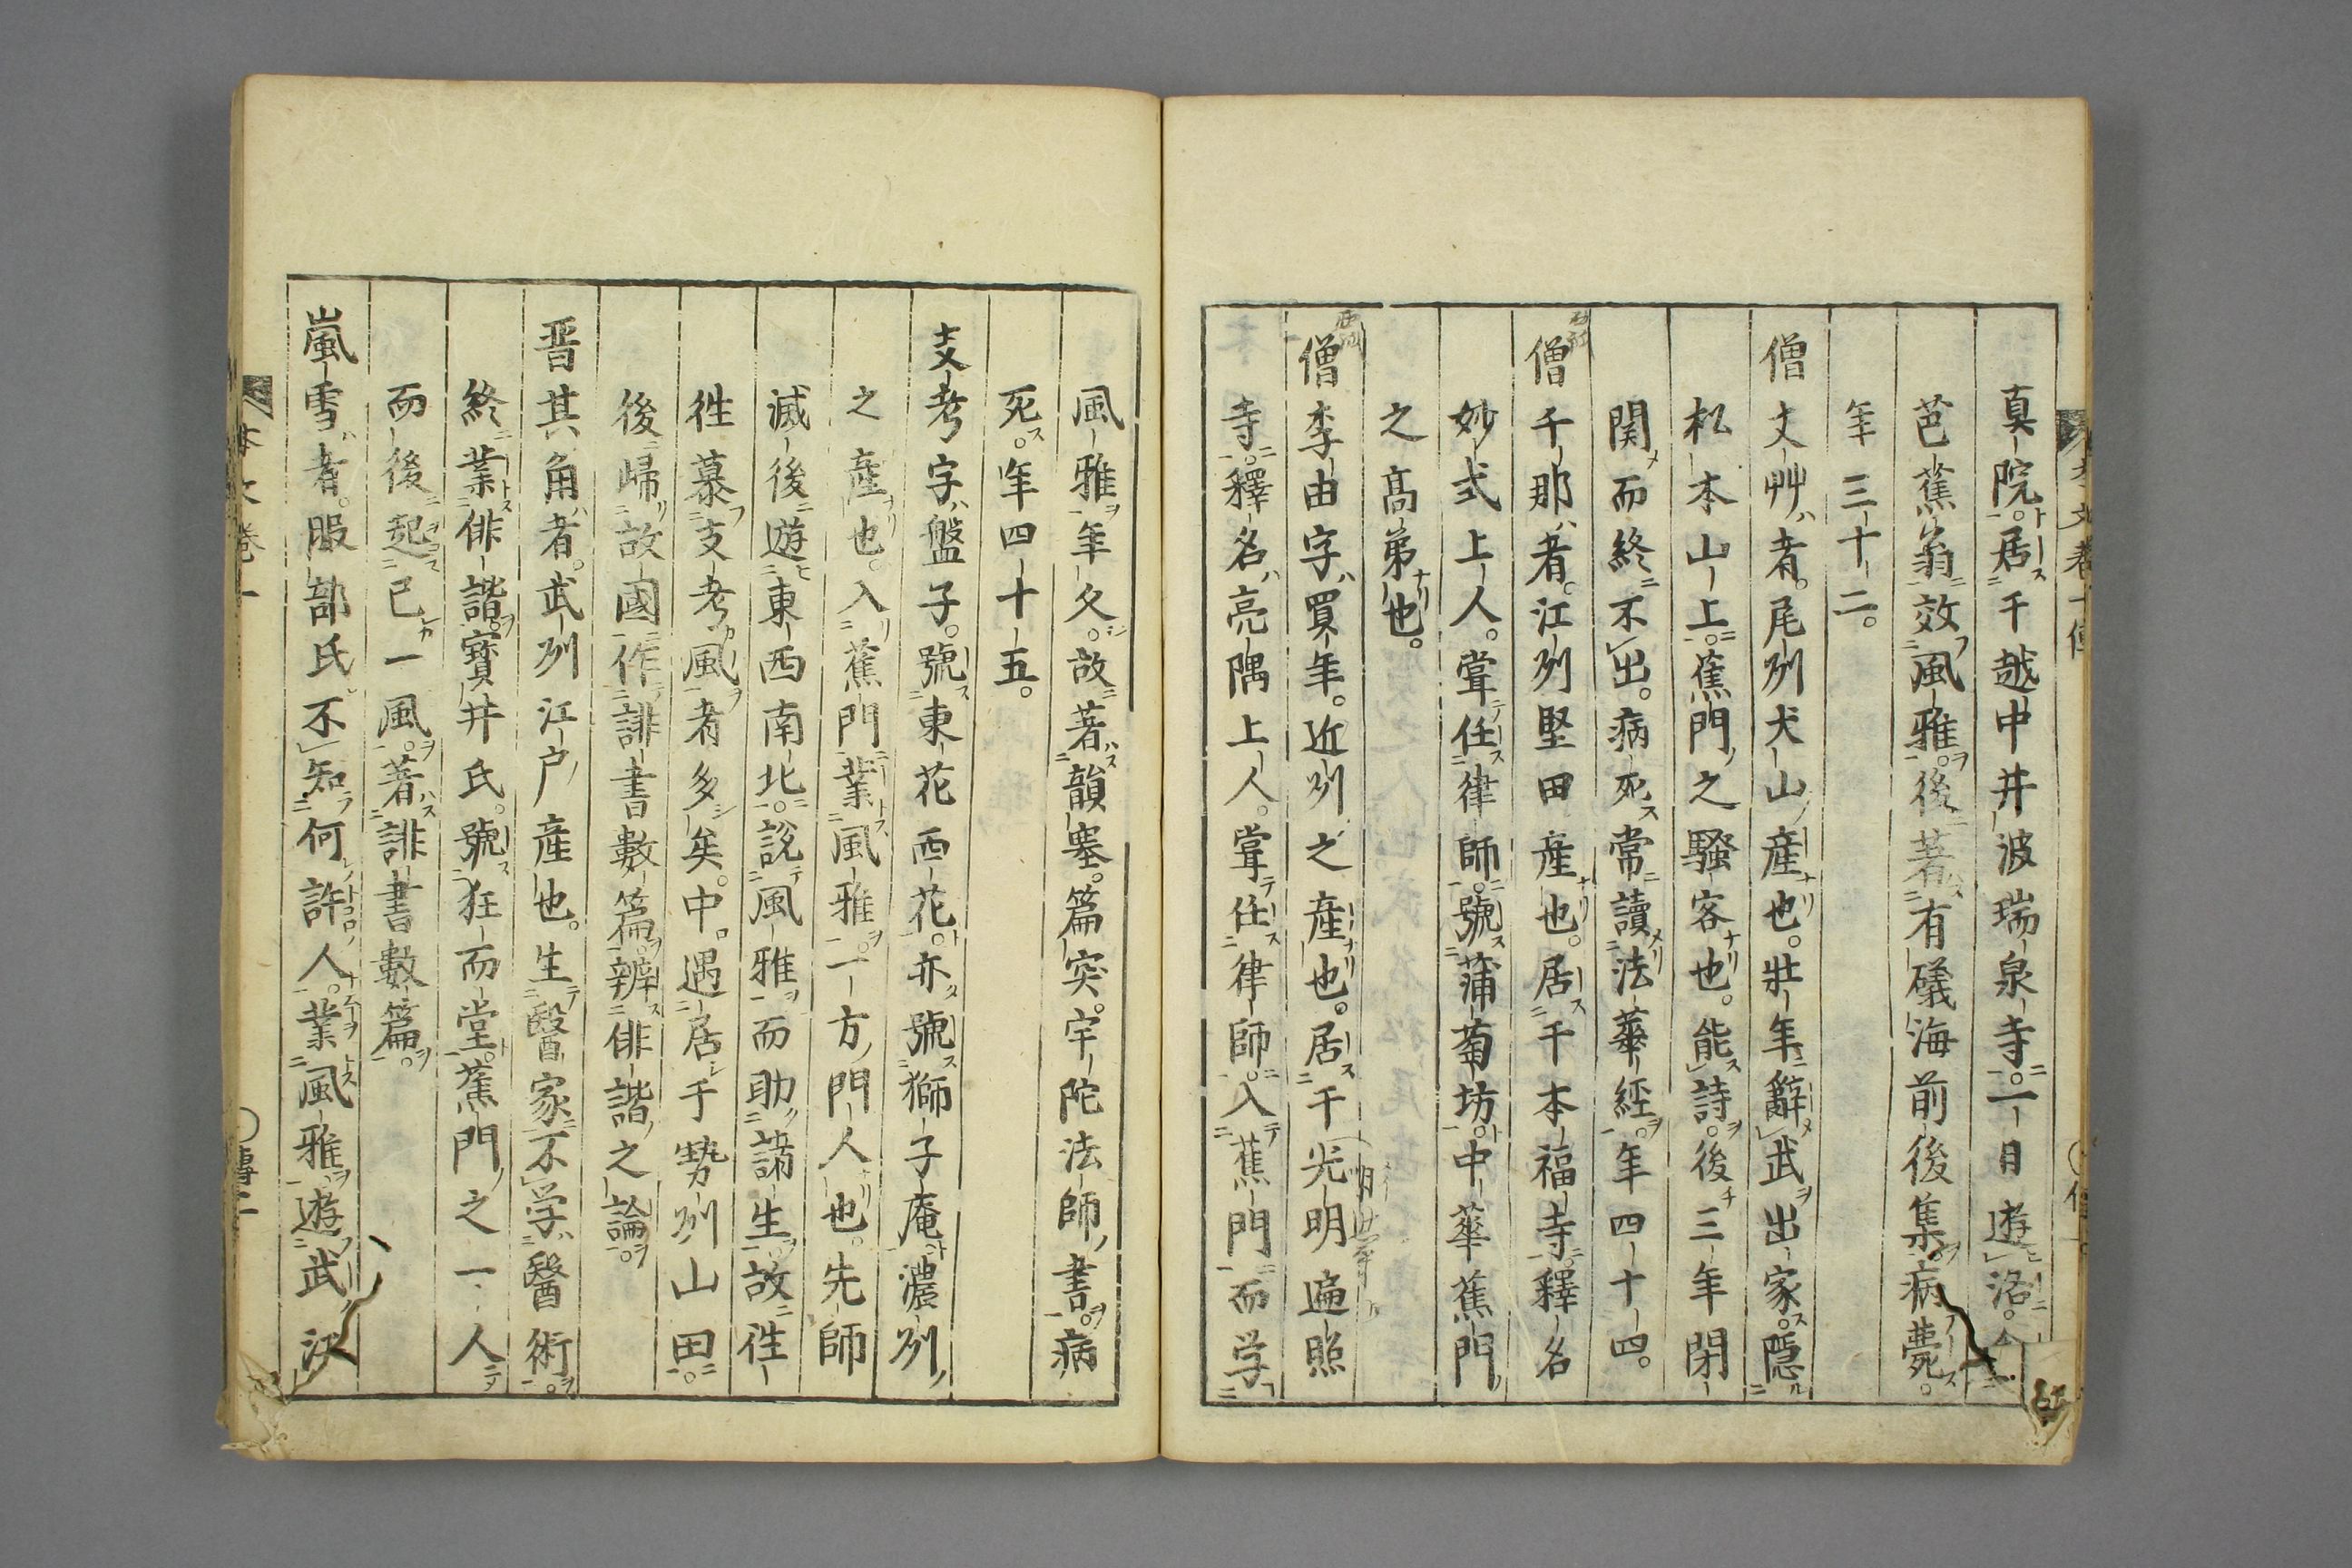 真院。居于越中井波瑞泉寺。一日遊洛。
芭蕉翁效風雅。後著有礒海前後集。病薨。
年三十二。
僧丈艸者。尾州犬山産也。壯年辭武出家。隱
松本山上。蕉門之騷客也。能詩。後三年閉
関而終不出。病死。常讀法華經。年四十四。
僧千那者。江州堅田産也。居于本福寺。釋名
妙式上人。甞任律師。號蒲萄坊。中華蕉門
之髙弟也。
僧李由字買年。近州之産也。居于光明遍照
寺。釋名亮隅上人。甞任律師。入蕉門而学
風雅年久。故著韻塞。篇突。宇陀法師書。病
死。年四十五。
支考字盤子。號東花西花。亦號獅子庵。濃州
之産也。入蕉門業風雅。一方門人也。先師
滅後遊東西南北。説風雅而助諸生。故徃
徃慕支考風者多矣。中遇居于勢州山田。
後歸故國作誹書數篇。辨俳諧之論。
晋其角者。武州江戸産也。生醫家不学醫術。
終業俳諧。寳井氏。號狂而堂。蕉門之一人
而後起已一風。著誹書數篇。
嵐雪者。服部氏不知何許人。業風雅遊武江
本文卷一
傳二